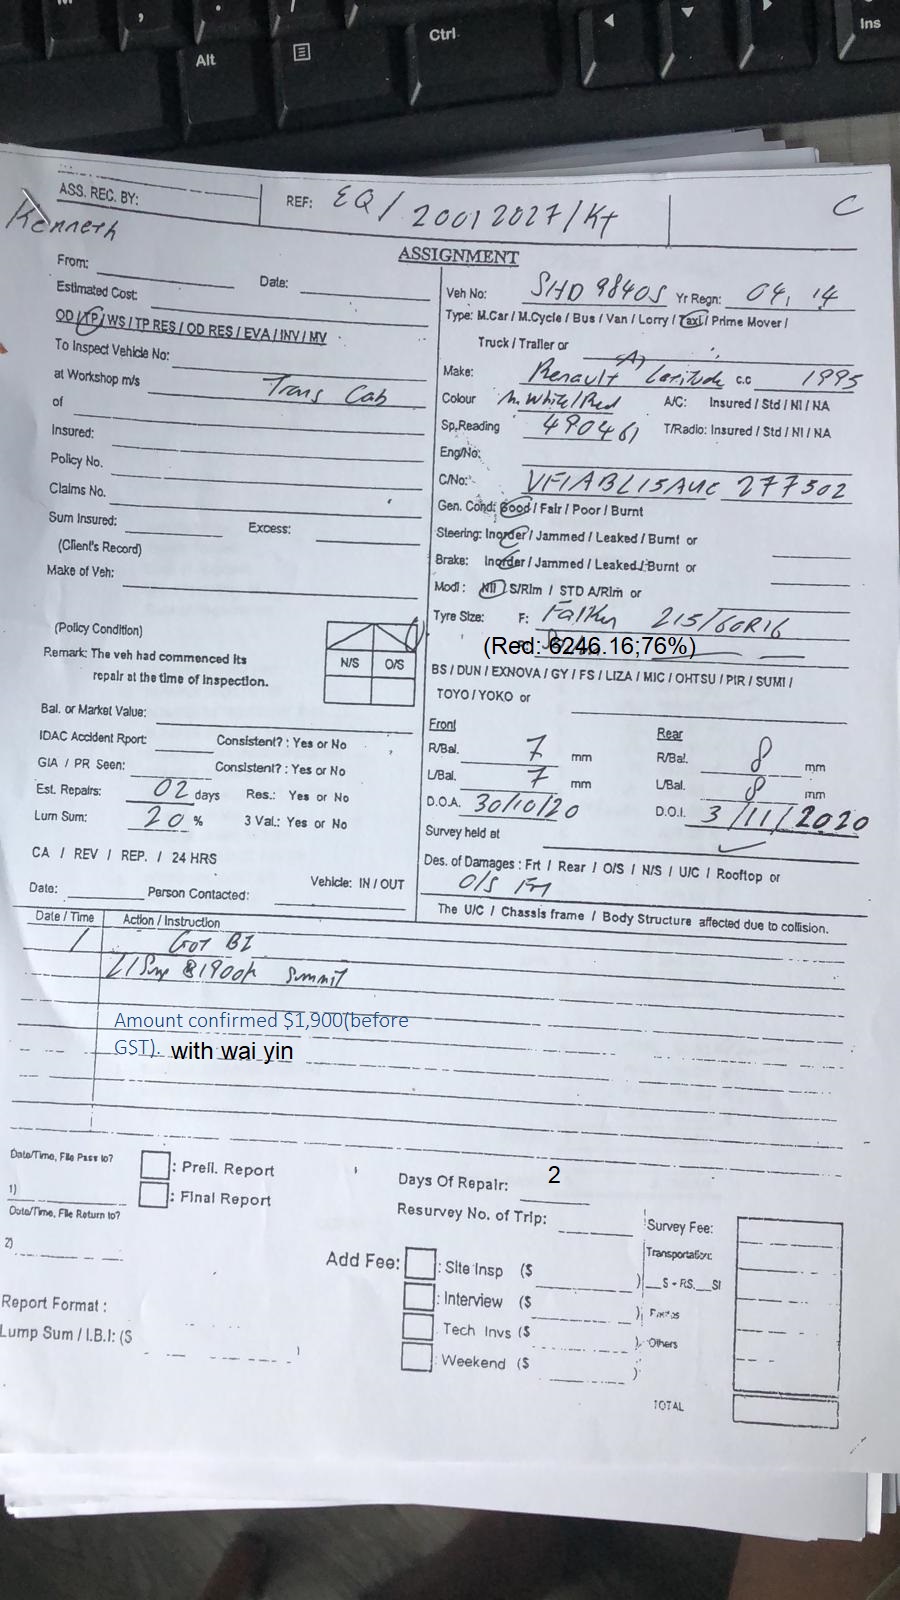 Ctrl
Alt
Ins
ASS. REC. BY:
Kenneth
REF: EQ/20012027/Kt
C
ASSIGNMENT
From:
Date:
Estimated Cost:
OD / TP / WS / TP RES / OD RES / EVA / INV / MV
To Inspect Vehicle No:
at Workshop m/s Trans Cab
of
Insured:
Policy No.
Claims No.
Sum Insured:
Excess:
(Client's Record)
Make of Veh:
(Policy Condition)
Remark: The veh had commenced its
repair at the time of inspection.
N/S O/S
Bal. or Market Value:
IDAC Accident Rport: Consistent? : Yes or No
GIA / PR Seen: Consistent? : Yes or No
Est. Repairs: 02 days Res.: Yes or No
Lum Sum: 20 % 3 Val.: Yes or No
CA / REV / REP. / 24 HRS
Vehicle: IN / OUT
Date: Person Contacted:
Veh No: SHD 9840S Yr Regn: 04, 14
Type: M.Car / M.Cycle / Bus / Van / Lorry / Taxi / Prime Mover /
Truck / Trailer or (A)
Make: Renault Latitude c.c 1995
Colour M. White/Red A/C: Insured / Std / NI / NA
Sp.Reading 490461 T/Radio: Insured / Std / NI / NA
Eng/No:
C/No: VF1ABL15AUC 277502
Gen. Cond: Good / Fair / Poor / Burnt
Steering: Inorder / Jammed / Leaked / Burnt or
Brake: Inorder / Jammed / Leaked / Burnt or
Modi: Nil / S/Rim / STD A/Rim or
Tyre Size: F: Falken 215/60R16
(Red: 6246.16;76%)
BS / DUN / EXNOVA / GY / FS / LIZA / MIC / OHTSU / PIR / SUMI /
TOYO / YOKO or
Front Rear
R/Bal. 7 mm R/Bal. 8 mm
L/Bal. 7 mm L/Bal. 8 mm
D.O.A. 30/10/20 D.O.I. 3/11/2020
Survey held at
Des. of Damages : Frt / Rear / O/S / N/S / U/C / Rooftop or
O/S Frt
The U/C / Chassis frame / Body Structure affected due to collision.
Date / Time Action / Instruction
Got BI
Amount confirmed $1,900(before
GST). with wai yin
Date/Time, File Pass to?
1)
Date/Time, File Return to?
2)
: Preli. Report
: Final Report
Days Of Repair: 2
Resurvey No. of Trip:
Add Fee: : Site Insp ($ )
: Interview ($ )
: Tech Invs ($ )
: Weekend ($ )
Survey Fee:
Transportation:
Others
TOTAL
Report Format :
Lump Sum / I.B.I: ($ )